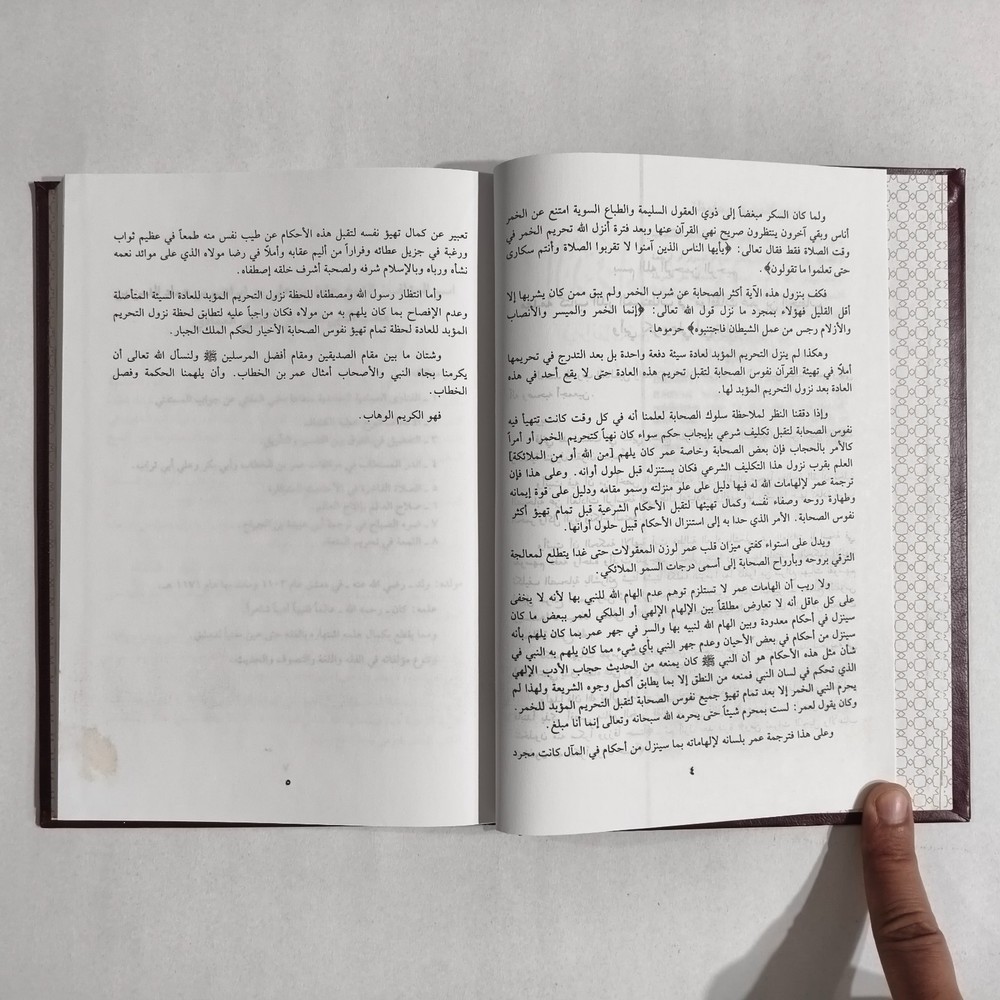 ولما كان السكر مبغضاً إلى ذوي العقول السليمة والطباع السوية امتنع عن الخمر
أناس وبقي آخرون ينتظرون صريح نهي القرآن عنها وبعد فترة أنزل الله تحريم الخمر في
وقت الصلاة فقط فقال تعالى: ﴿يأيها الناس الذين آمنوا لا تقربوا الصلاة وأنتم سكارى
حتى تعلموا ما تقولون﴾.
فكف بنزول هذه الآية أكثر الصحابة عن شرب الخمر ولم يبق ممن كان يشربها إلا
أقل القليل فهؤلاء بمجرد ما نزل قول الله تعالى: ﴿إنما الخمر والميسر والأنصاب
والأزلام رجس من عمل الشيطان فاجتنبوه﴾ حرموها.
وهكذا لم ينزل التحريم المؤبد لعادة سيئة دفعة واحدة بل بعد التدرج في تحريمها
أملاً في تهيئة القرآن نفوس الصحابة لتقبل تحريم هذه العادة حتى لا يقع أحد في هذه
العادة بعد نزول التحريم المؤبد لها.
وإذا دققنا النظر لملاحظة سلوك الصحابة لعلمنا أنه في كل وقت كانت تتهيأ فيه
نفوس الصحابة لتقبل تكليف شرعي بإيجاب حكم سواء كان نهياً كتحريم الخمر أو أمراً
كالأمر بالحجاب فإن بعض الصحابة وخاصة عمر كان يلهم [من الله أو من الملائكة]
العلم بقرب نزول هذا التكليف الشرعي فكان يستنزله قبل حلول أوانه. وعلى هذا فإن
ترجمة عمر لإلهامات الله له فيها دليل على علو منزلته وسمو مقامه ودليل على قوة إيمانه
وطهارة روحه وصفاء نفسه وكمال تهيئها لتقبل الأحكام الشرعية قبل تمام تهيؤ أكثر
نفوس الصحابة. الأمر الذي حدا به إلى استنزال الأحكام قبيل حلول أوانها.
ويدل على استواء كفتي ميزان قلب عمر لوزن المعقولات حتى غدا يتطلع لمعالجة
الترقي بروحه وبأرواح الصحابة إلى أسمى درجات السمو الملائكي.
ولا ريب أن الهامات عمر لا تستلزم توهم عدم الهام الله للنبي بها لأنه لا يخفى
على كل عاقل أنه لا تعارض مطلقاً بين الإلهام الإلهي أو الملكي لعمر ببعض ما كان
سينزل في أحكام معدودة وبين الهام الله لنبيه بها والسر في جهر عمر بما كان يلهم بأنه
سينزل من أحكام في بعض الأحيان وعدم جهر النبي بأي شيء مما كان يلهم به النبي في
شأن مثل هذه الأحكام هو أن النبي ﷺ كان يمنعه من الحديث حجاب الأدب الإلهي
الذي تحكم في لسان النبي فمنعه من النطق إلا بما يطابق أكمل وجوه الشريعة ولهذا لم
يحرم النبي الخمر إلا بعد تمام تهيؤ جميع نفوس الصحابة لتقبل التحريم المؤبد للخمر.
وكان يقول لعمر: لست بمحرم شيئاً حتى يحرمه الله سبحانه وتعالى إنما أنا مبلغ.
وعلى هذا فترجمة عمر بلسانه لإلهاماته بما سينزل من أحكام في المآل كانت مجرد
٤
تعبير عن كمال تهيؤ نفسه لتقبل هذه الأحكام عن طيب نفس منه طمعاً في عظيم ثواب
ورغبة في جزيل عطائه وفراراً من أليم عقابه وأملاً في رضا مولاه الذي على موائد نعمه
نشأه ورباه وبالإسلام شرفه ولصحبة أشرف خلقه إصطفاه.
وأما انتظار رسول الله ومصطفاه للحظة نزول التحريم المؤبد للعادة السيئة المتأصلة
وعدم الإفصاح بما كان يلهم به من مولاه فكان واجباً عليه لتطابق لحظة نزول التحريم
المؤبد للعادة لحظة تمام تهيؤ نفوس الصحابة الأخيار لحكم الملك الجبار.
وشتان ما بين مقام الصديقين ومقام أفضل المرسلين ﷺ ولنسأل الله تعالى أن
يكرمنا بجاه النبي والأصحاب أمثال عمر بن الخطاب. وأن يلهمنا الحكمة وفصل
الخطاب.
فهو الكريم الوهاب.
٥